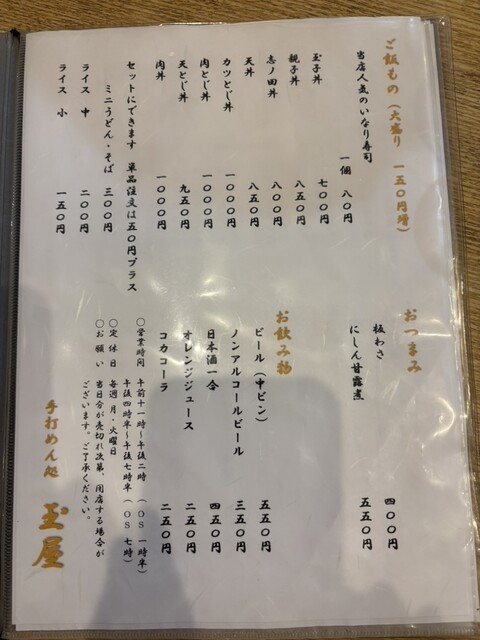 ご飯もの（大盛り 一五〇円増）
当店人気のいなり寿司
一個 八〇円
玉子丼 七〇〇円
親子丼 八五〇円
志ノ田丼 八〇〇円
天丼 八五〇円
カツとじ丼 一〇〇〇円
肉とじ丼 一〇〇〇円
天とじ丼 九五〇円
肉丼 一〇〇〇円
セットにできます 単品注文は五〇円プラス
ミニうどん・そば 三〇〇円
ライス 中 二〇〇円
ライス 小 一五〇円
おつまみ
板わさ 四〇〇円
にしん甘露煮 五五〇円
お飲み物
ビール（中ビン） 五五〇円
ノンアルコールビール 三五〇円
日本酒一合 四五〇円
オレンジジュース 二五〇円
コカコーラ 二五〇円
〇営業時間 午前十一時～午後二時（OS 一時半）
午後四時半～午後七時半（OS 七時）
〇定休日 毎週月・火曜日
〇お願い 当日分が売切れ次第、閉店する場合が
ございます。ご了承ください。
手打めん処 玉屋